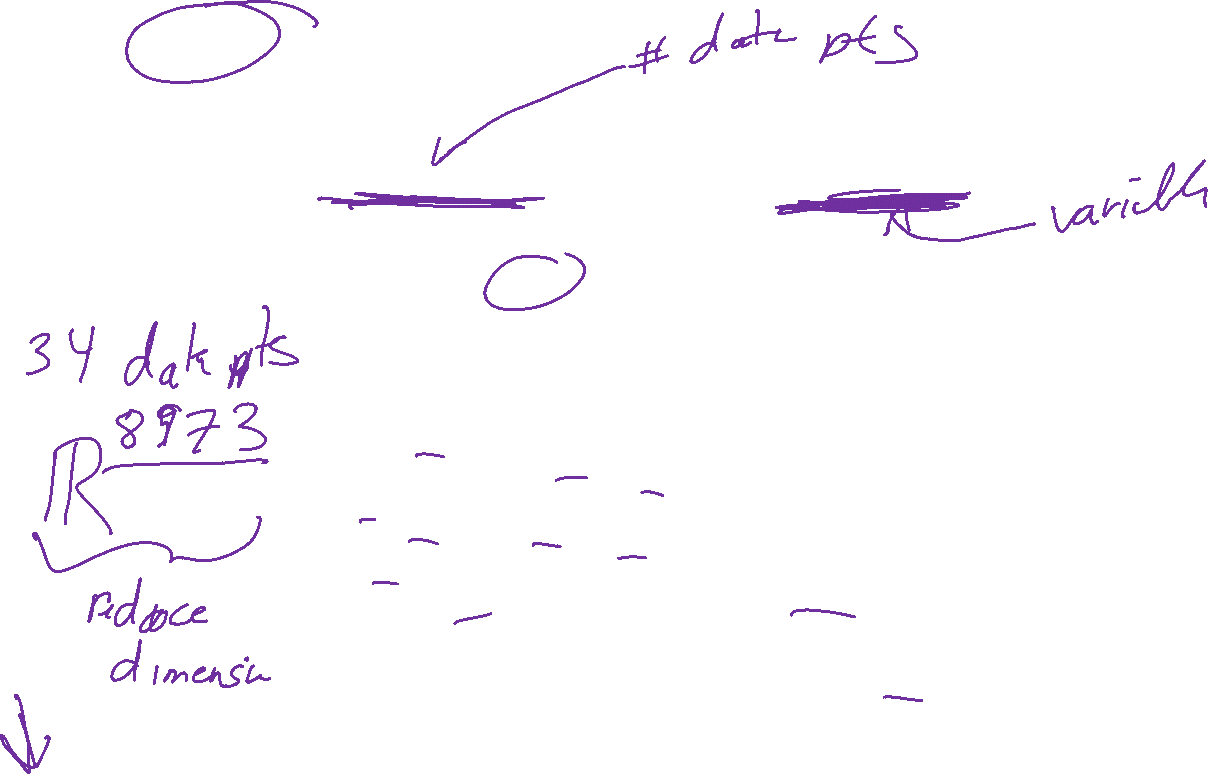 # data pts
variables
34 data pts
8973
R
reduce
dimension